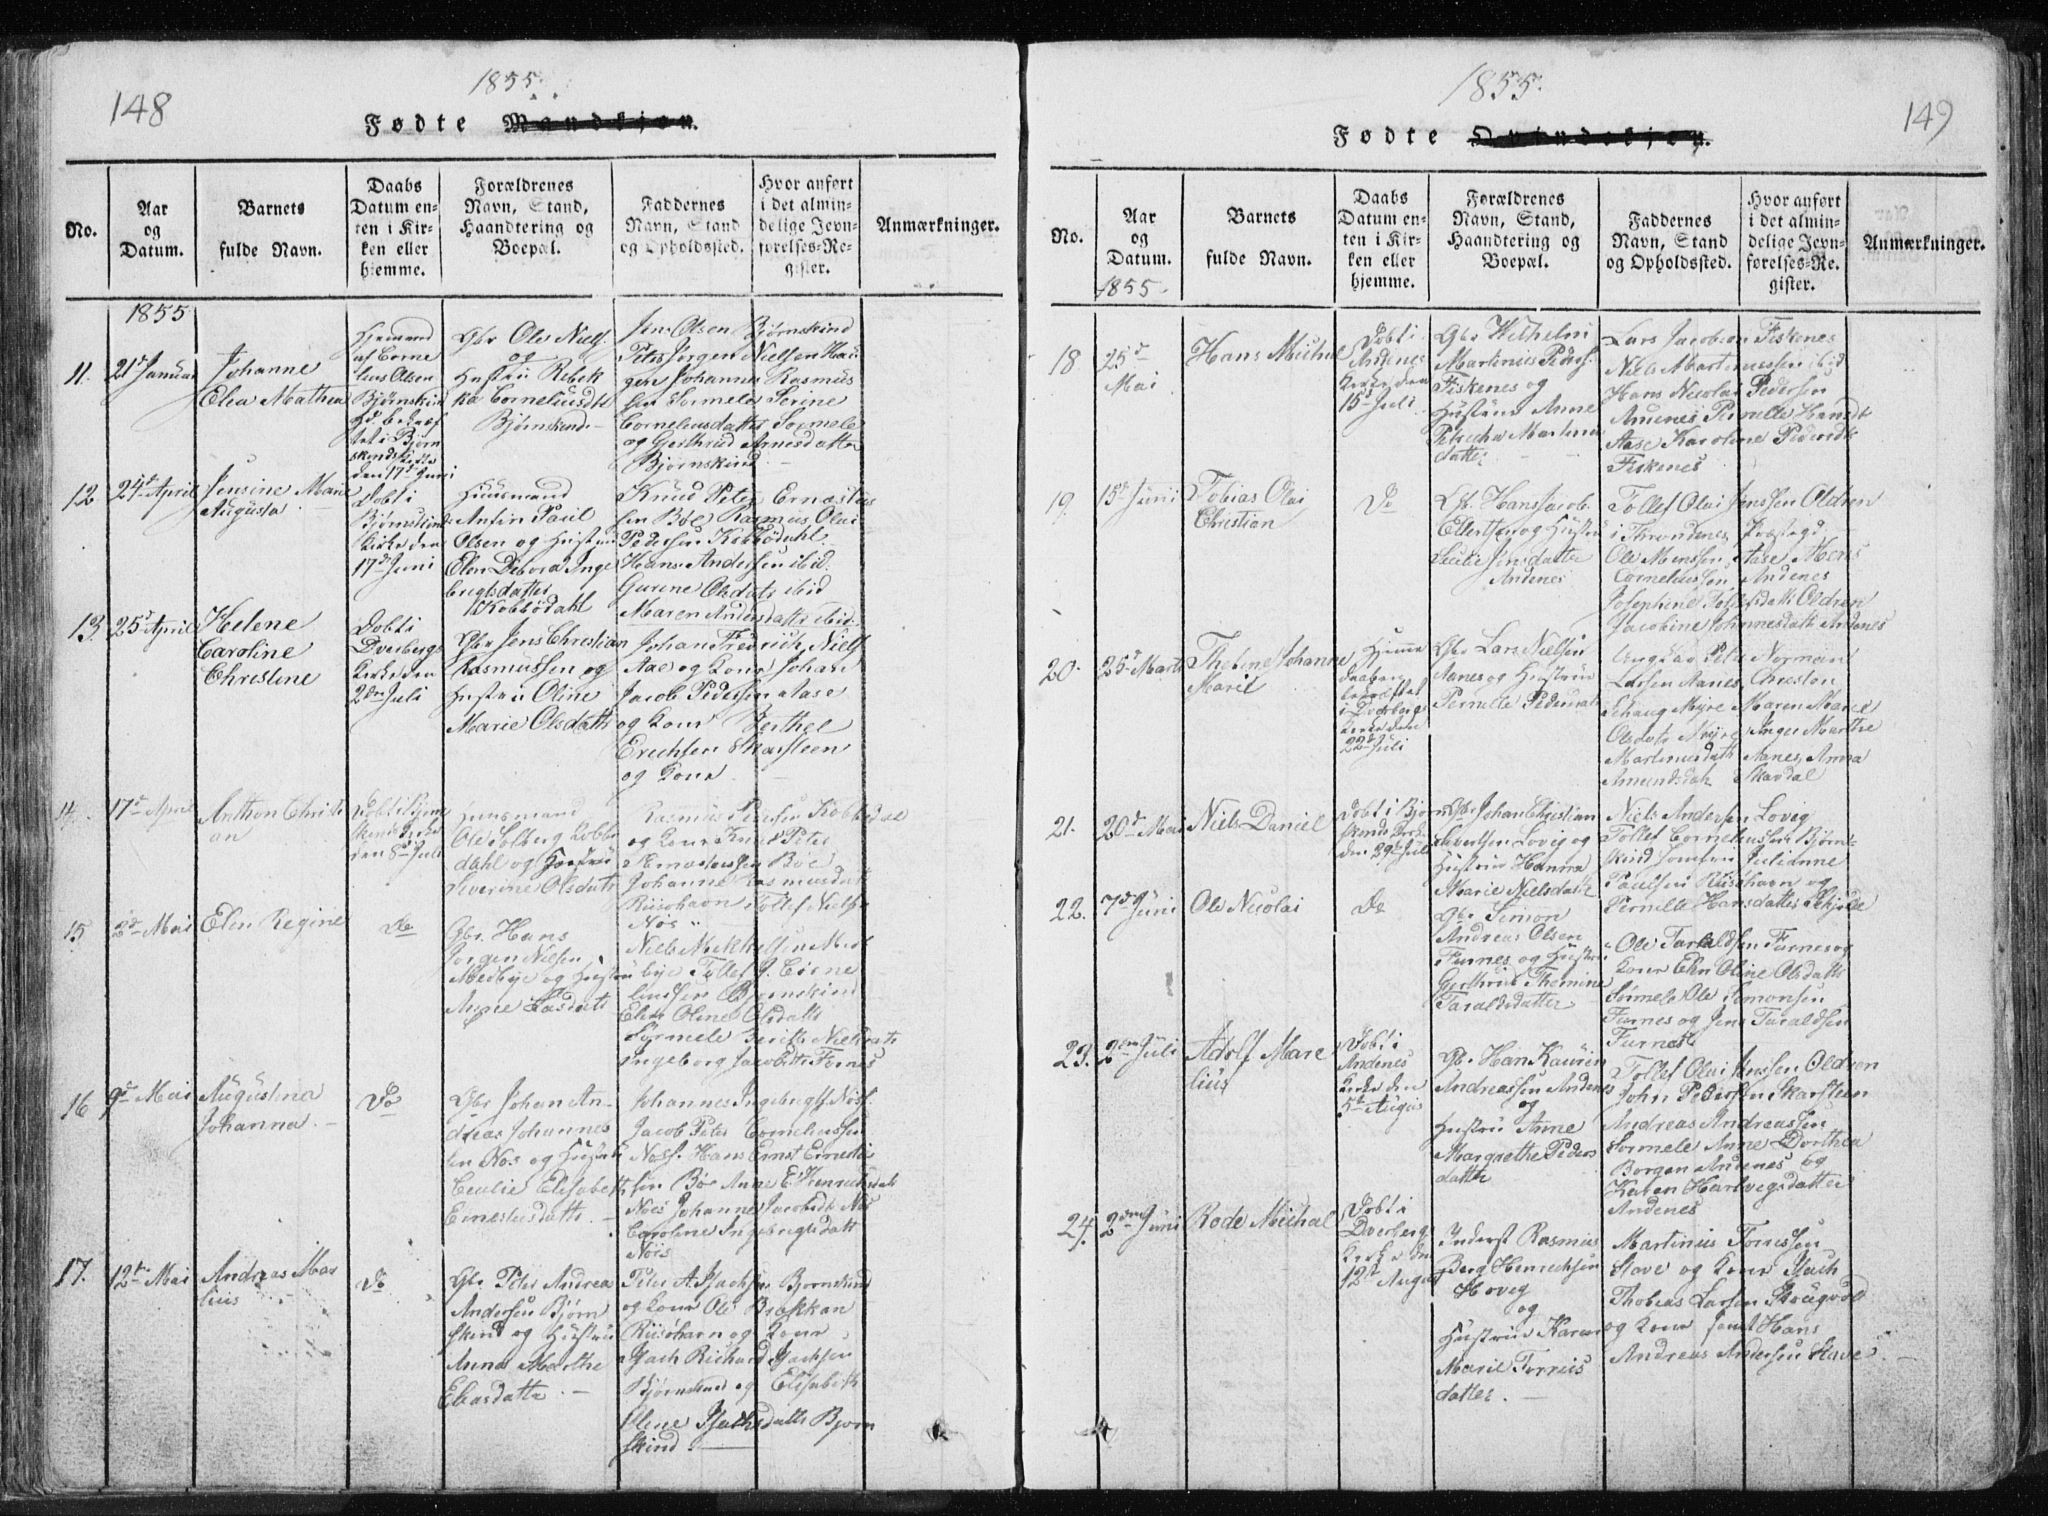 148
1855.
Fødte Mandkjøn.
No.
Aar
og
Datum.
Barnets
fulde Navn.
Daabs
Datum en-
ten i Kir-
ken eller
hjemme.
Forældrenes
Navn, Stand,
Haandtering og
Boepæl.
Faddernes
Navn, Stand
og Opholdssted.
Hvor anført
i det almin-
delige Jevn-
førelses-Re-
gister.
Anmærkninger.
1855
11.
21de Januar
Johanne
Elea Mathea
Hjemmed
af Corne
lius Olsen
Bjørnskin
bekræf
tet i Bjørn
skinds Kirke
den 17de Juni
Gbr Ole Niels.
og
Hustru Rebek
ka Corneliusdt
Bjørnskind
Jens Olsen Bjørnskind
Peter Jørgen Nielsen Hau
gen Johannes Rasmus
sen Sormele Serine
Corneliusdatter Sormele
og Gjerthrud Arnesdatter
Bjørnskind.
12
24de April
Jensine Marie
Augusta
Døbt i
Bjørnskinds
Kirke den
17de Juni
Huusmand
Antin Paul
Olsen og Hustru
Elen Debora Inge
brigtsdatter
Kobbødahl
Knud Peter Ernæstus
sen Bøe Rasmus Olai
Pedersen Kobbødahl
Hans Andersen ibid.
Gurine Olsdatr ibid
Maren Andersdattr ibid
13.
25de April
Helene
Caroline
Christine
Døbt i
Dverbergs
Kirke den
2den Juli
Gbr Jens Christian
Rasmussen og
Hustru Oline
Marie Olsdattr
Johan Fredrich Niels
Aae og Kone Johan
Jacob Pedersen Aase
og Kone Berthel
Erichsen Skarsteen
og Kone.
14.
17de April
Anthon Christi
an
Døbt i Bjørn
skinds Kirke
den 8de Juli
Huusmand
Ole Solberg Kobbe
dahl og Hustru
Severine Olsdatr
Rasmus Pedersen Kobbedal
og Kone Knud Peter
Ernæstussen Bøe
Johanne Rasmusdatr
Riisøhavn Tollef Nielsen
Nøs
15
2de Mai
Elen Regine
do
Gbr. Hans
Jørgen Nielsen
Medbye og Hustru
Anne Easdatr
Niels Mekkelsen Med
bye Tollef J. Corne
liussen Bjørnskind
Elen Oline Olsdattr
Sørmele Berith Nielsdatr
Ingeborg Jacobdtr Fornes
16
9de Mai
Augustina
Johanna
Do
Gbr Johan An-
dreas Johannes
sen Nøs og Hustru
Cecilie Elisabeth
Ernestusdattr.
Johannes Ingebrigts Nøss.
Jacob Peter Corneliussen
Nøss. Hans Ernst Ernestu
sen Bøe Anne E. Henrichsdatr
Nøes Johanne Jacobsdt Nøs
Caroline Ingebrigtsdatt
Nøis
17.
12te Mai
Andreas Mar
lius
do
Gbr Peter Andrea
Andersen Bjørn
skind og Hustru
Anna Marthe
Eliasdatter.
Peter A Isachsen Bjørnskind
og Kone Ole Brokkan
Riisøhavn og Kone
Isach Richard Isachsen
Bjørnskind og Elisabeth
Elene Isachsdattr Bjørn
skind.
149
1855.
Fødte Qvindekjøn.
No.
Aar
og
Datum.
Barnets
fulde Navn.
Daabs
Datum en-
ten i Kir-
ken eller
hjemme.
Forældrenes
Navn, Stand,
Haandtering og
Boepæl.
Faddernes
Navn, Stand
og Opholdssted.
Hvor anført
i det almin-
delige Jevn-
førelses-Re-
gister.
Anmærkninger.
1855.
18
25de
Mai
Hans Michal
Døbt i
Andenes
Kirke den
15de Juli
Gbr Wilhelm
Martinus Peders.
Fiskenes og
Hustrue Anne
Petrecha Martinus
datter
Lars Jacobsen Fiskenes
Niels Martinussen ibid
Hans Nicolai Pedersen
Andenes Pernille Hansdt
Aase Karoline Pedersdt
Fiskenes
19.
15de Junii
Tobias Olai
Christian
Do
Gbr. Hans Jacob
Ellertsen og Hustru
Cecilie Jensdatter
Andenes
Tollef Olai Jenssen Oldren
i Throndenes Præstegd
Ole Monssen Aase Mons
Corneliussen Andenes
Josephine Tollefsdatt Oldren
Jacobine Johannesdatt Andenes
20.
25de Marts
Theline Johanne
Marie
Hjemme
daaben
bekræftet
i Dverberg
Kirke den
22de Juli
Gbr Lars Nielsen
Aanes og Hustrue
Pernille Pedersdatr
Ungkar Peter Norman
Larsen Aanes, Christen
Schaug Myre Maren Marie
Olsdatr Myre Inger Marthe
Martinusdatr Aanes, Anna
Amundsdatr Skavdal
21.
20de Mai
Niels Daniel
Døbt i Bjø
skinds Kirke
den 29de Juli
Gbr Johan Christian
Sivertsen Lovig og
Hustrue Hanna
Marie Nielsdattr
Niels Andersen Lovig
Tollef Corneliussen Bjørn-
skind Jomfru Julianne
Paulsen Riisøhavn og
Pernille Hansdatter Skjolde
22.
7de Juni
Ole Nicolai
do
Gbr Simon
Andreas Olsen
Furnes og Hustru
Gjerthrue Themine
Taraldsdatter
Ole Taraldsen Furnes og
Kone Elen Oline Olsdattr
Sørmele Ole Simonsen
Furnes og Jens Taraldsen
Furnes
23.
2den Juli
Adolf Mare
lius
Døbt i
Andenes
Kirke den
5te Augus
Gbr. Hans Kaurin
Andreassen Andenes
og
Hustru Anne
Margrethe Peders
datter
Tollef Olai Jenssen Oldren
John Pedersen Skarsteen
Andreas Andreassen
Sormele Anne Dorthea
Borgen Andenes og
Karen Hartvigsdatter
Andenes
24.
2den Juni
Rode Michal
Døbt i
Dverberg
Kirke den
12te August
Inderst Rasmus
Berg Henrechsen
Hoveg
og
Hustrue Karen
Marie Torreis
datter.
Martinus Torressen
Stave og Kone Isach
Thobias Larsen Skougvold
og Kone samt Hans
Andreas Andersen Stave